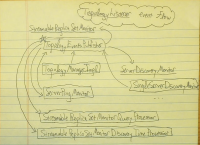 Topology Listener Event Flow
Streamable Replica Set Monitor
Topology Events Publisher
Topology Manager Impl
Server Discovery Monitor
Single Server Discovery Monitor
Server Ping Monitor
Streamable Replica Set Monitor Query Processor
Streamable Replica Set Monitor Discovery Time Processor